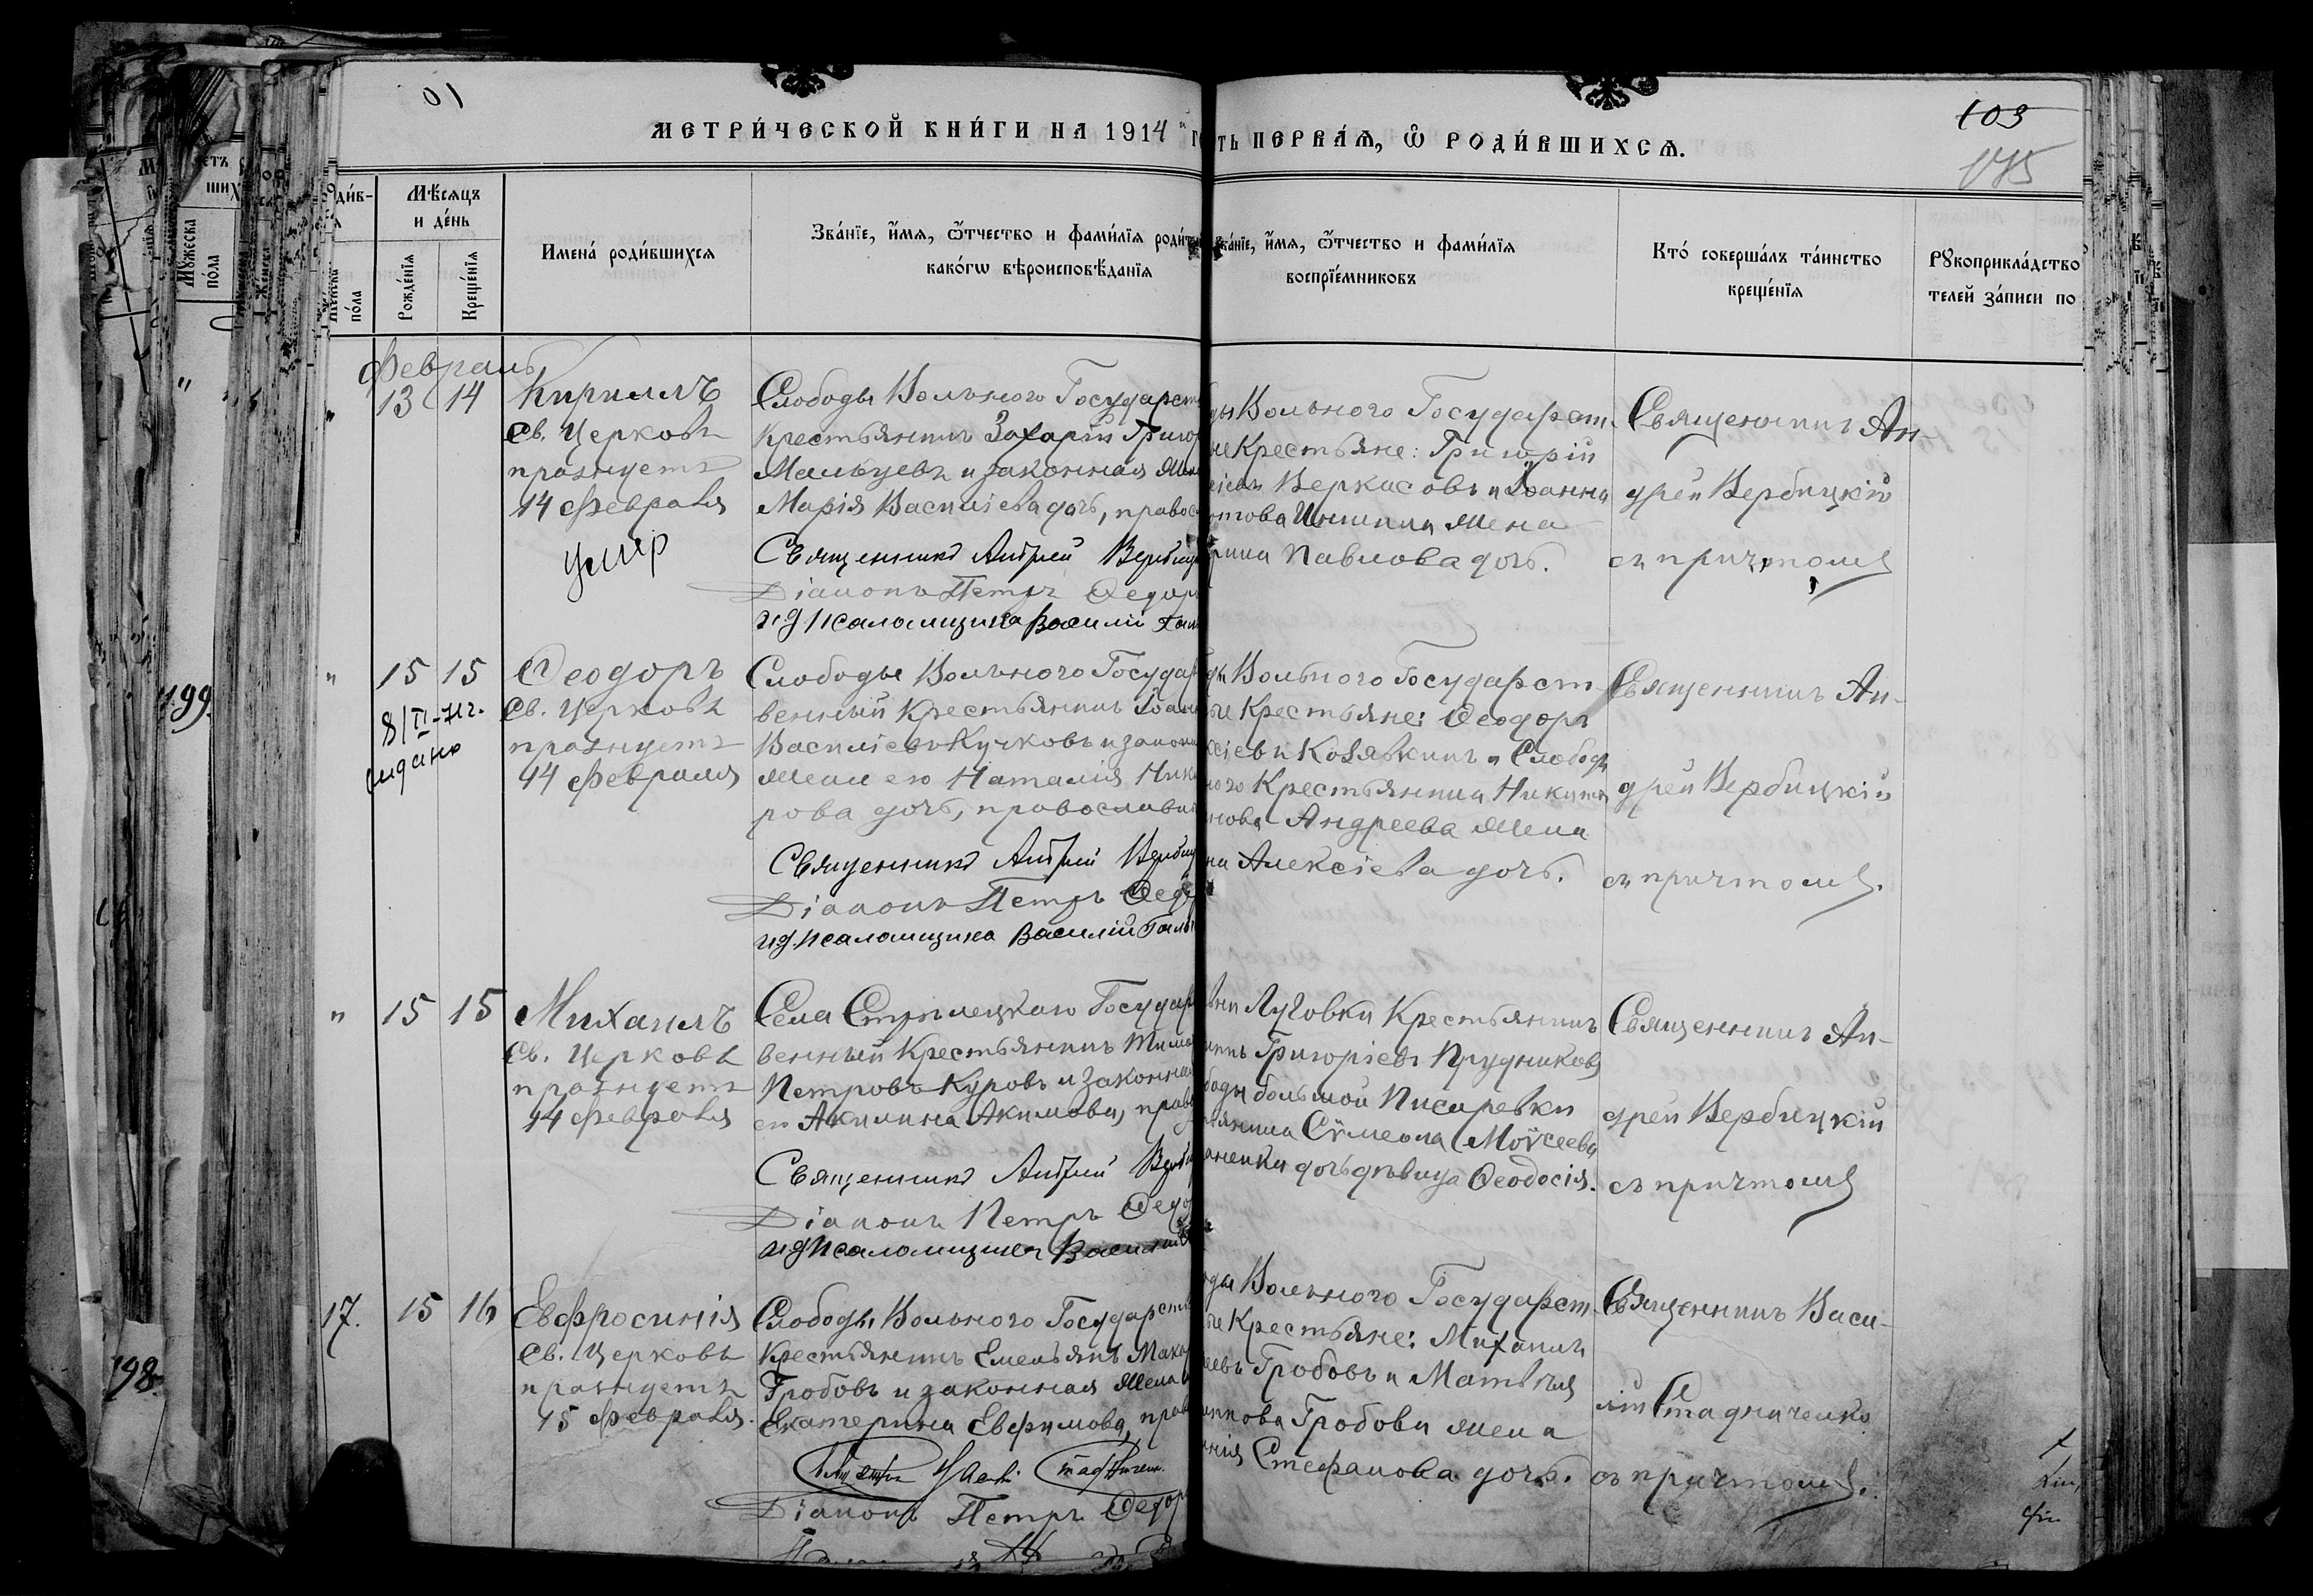 01
МЕТРИ́ЧЕСКОЙ КНИ́ГИ НА 1914
ть ПЕРВАѦ, Ѡ҆ РОДИ́ВШИХСѦ.
103
Мѣ́сяцъ
и де́нь
Рожде́нїя
Креще́нїя
по́ла
Мꙋжеска
по́ла
Имена́ роди́вшихся
Зва́нїе, и҆́мя, ѻ҆́тчество и фами́лїя роди́т
како́гѡ вѣроисповѣ́данїя
Зва́нїе, и҆́мя, ѻ҆́тчество и фами́лїя
воспрїе́мниковъ
Кто́ соверша́лъ та́инство
креще́нїя
Рꙋкоприкла́дство
телей за́писи по
Февраль
13 14
Кириллъ
Св. Церковь
празнуетъ
14 февраля
умер
Слободы Вольного Государст
крестьянинъ Захарій Григор
Мальцевъ и законная Же
Марія Василіева дочь, правос
Священникъ Андрей Вербиц
Діаконъ Петръ Ѳедор
и д псаломщика Василій
ды Вольного Государст-
не Крестьяне: Григорій
Веркасовъ и Іоанна
жена
Павлова дочь.
Священникъ Ан-
дрей Вербицкій
съ причтомъ
" 15 15
8/II-71г.
видано
199
Ѳеодоръ
Св. Церковь
празнуетъ
14 февраля
Слободы Вольного Государ
венный Крестьянинъ Іоан
Василіевъ Кучковъ и закон
жена его Наталія Ник
рова дочь, православн
Священникъ Андрей Вербиц
Діаконъ Петръ Ѳед
и д. псаломщика Василій
ды Вольного Государст-
ые Крестьяне: Ѳеодоръ
ксіевъ Козявкинъ и Слободы
ного Крестьянина Никиты
нова Андреева жена
на Алексіева дочь.
Священникъ Ан-
дрей Вербицкій
съ причтомъ.
" 15 15
Михаилъ
Св. Церковь
празнуетъ
14 февраля
Села Ступлецкаго Государ
венный Крестьянинъ Тимо
Петровъ Куровъ и законная
его Акилина Акимова, прав
Священникъ Андрей Верби
Діаконъ Петръ Ѳедо
и д псаломщика Василій
вни Луговки Крестьянинъ
Григоріевъ Прудниковъ
боды большой Писаревки
тьянина Сѵмеона Моѵсеева
аненка дочь дѣвица Ѳеодосія.
Священникъ Ан-
дрей Вербицкій
съ причтомъ
17. 15 16
198
Евфросинія
Св. Церковь
празнуетъ
15 февраля.
Слободы Вольного Государств
крестьянинъ Емельянъ Мака
Гробовъ и законная жена
Екатерина Евфимова, прав
Діаконъ Петръ Ѳедор
оды Вольного Государст-
ые Крестьяне: Михаилъ
еевъ Гробовъ и Матвѣя
Гробова жена
Стефанова дочь.
Священникъ Васи-
лій Стадниченко
съ причтомъ.